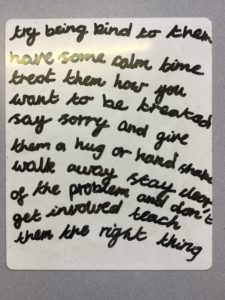 try being kind to them
have some calm time
treat them how you
want to be treated
say sorry and give
them a hug or hand shake
walk away stay clear
of the problem and don't
get involved teach
them the right thing